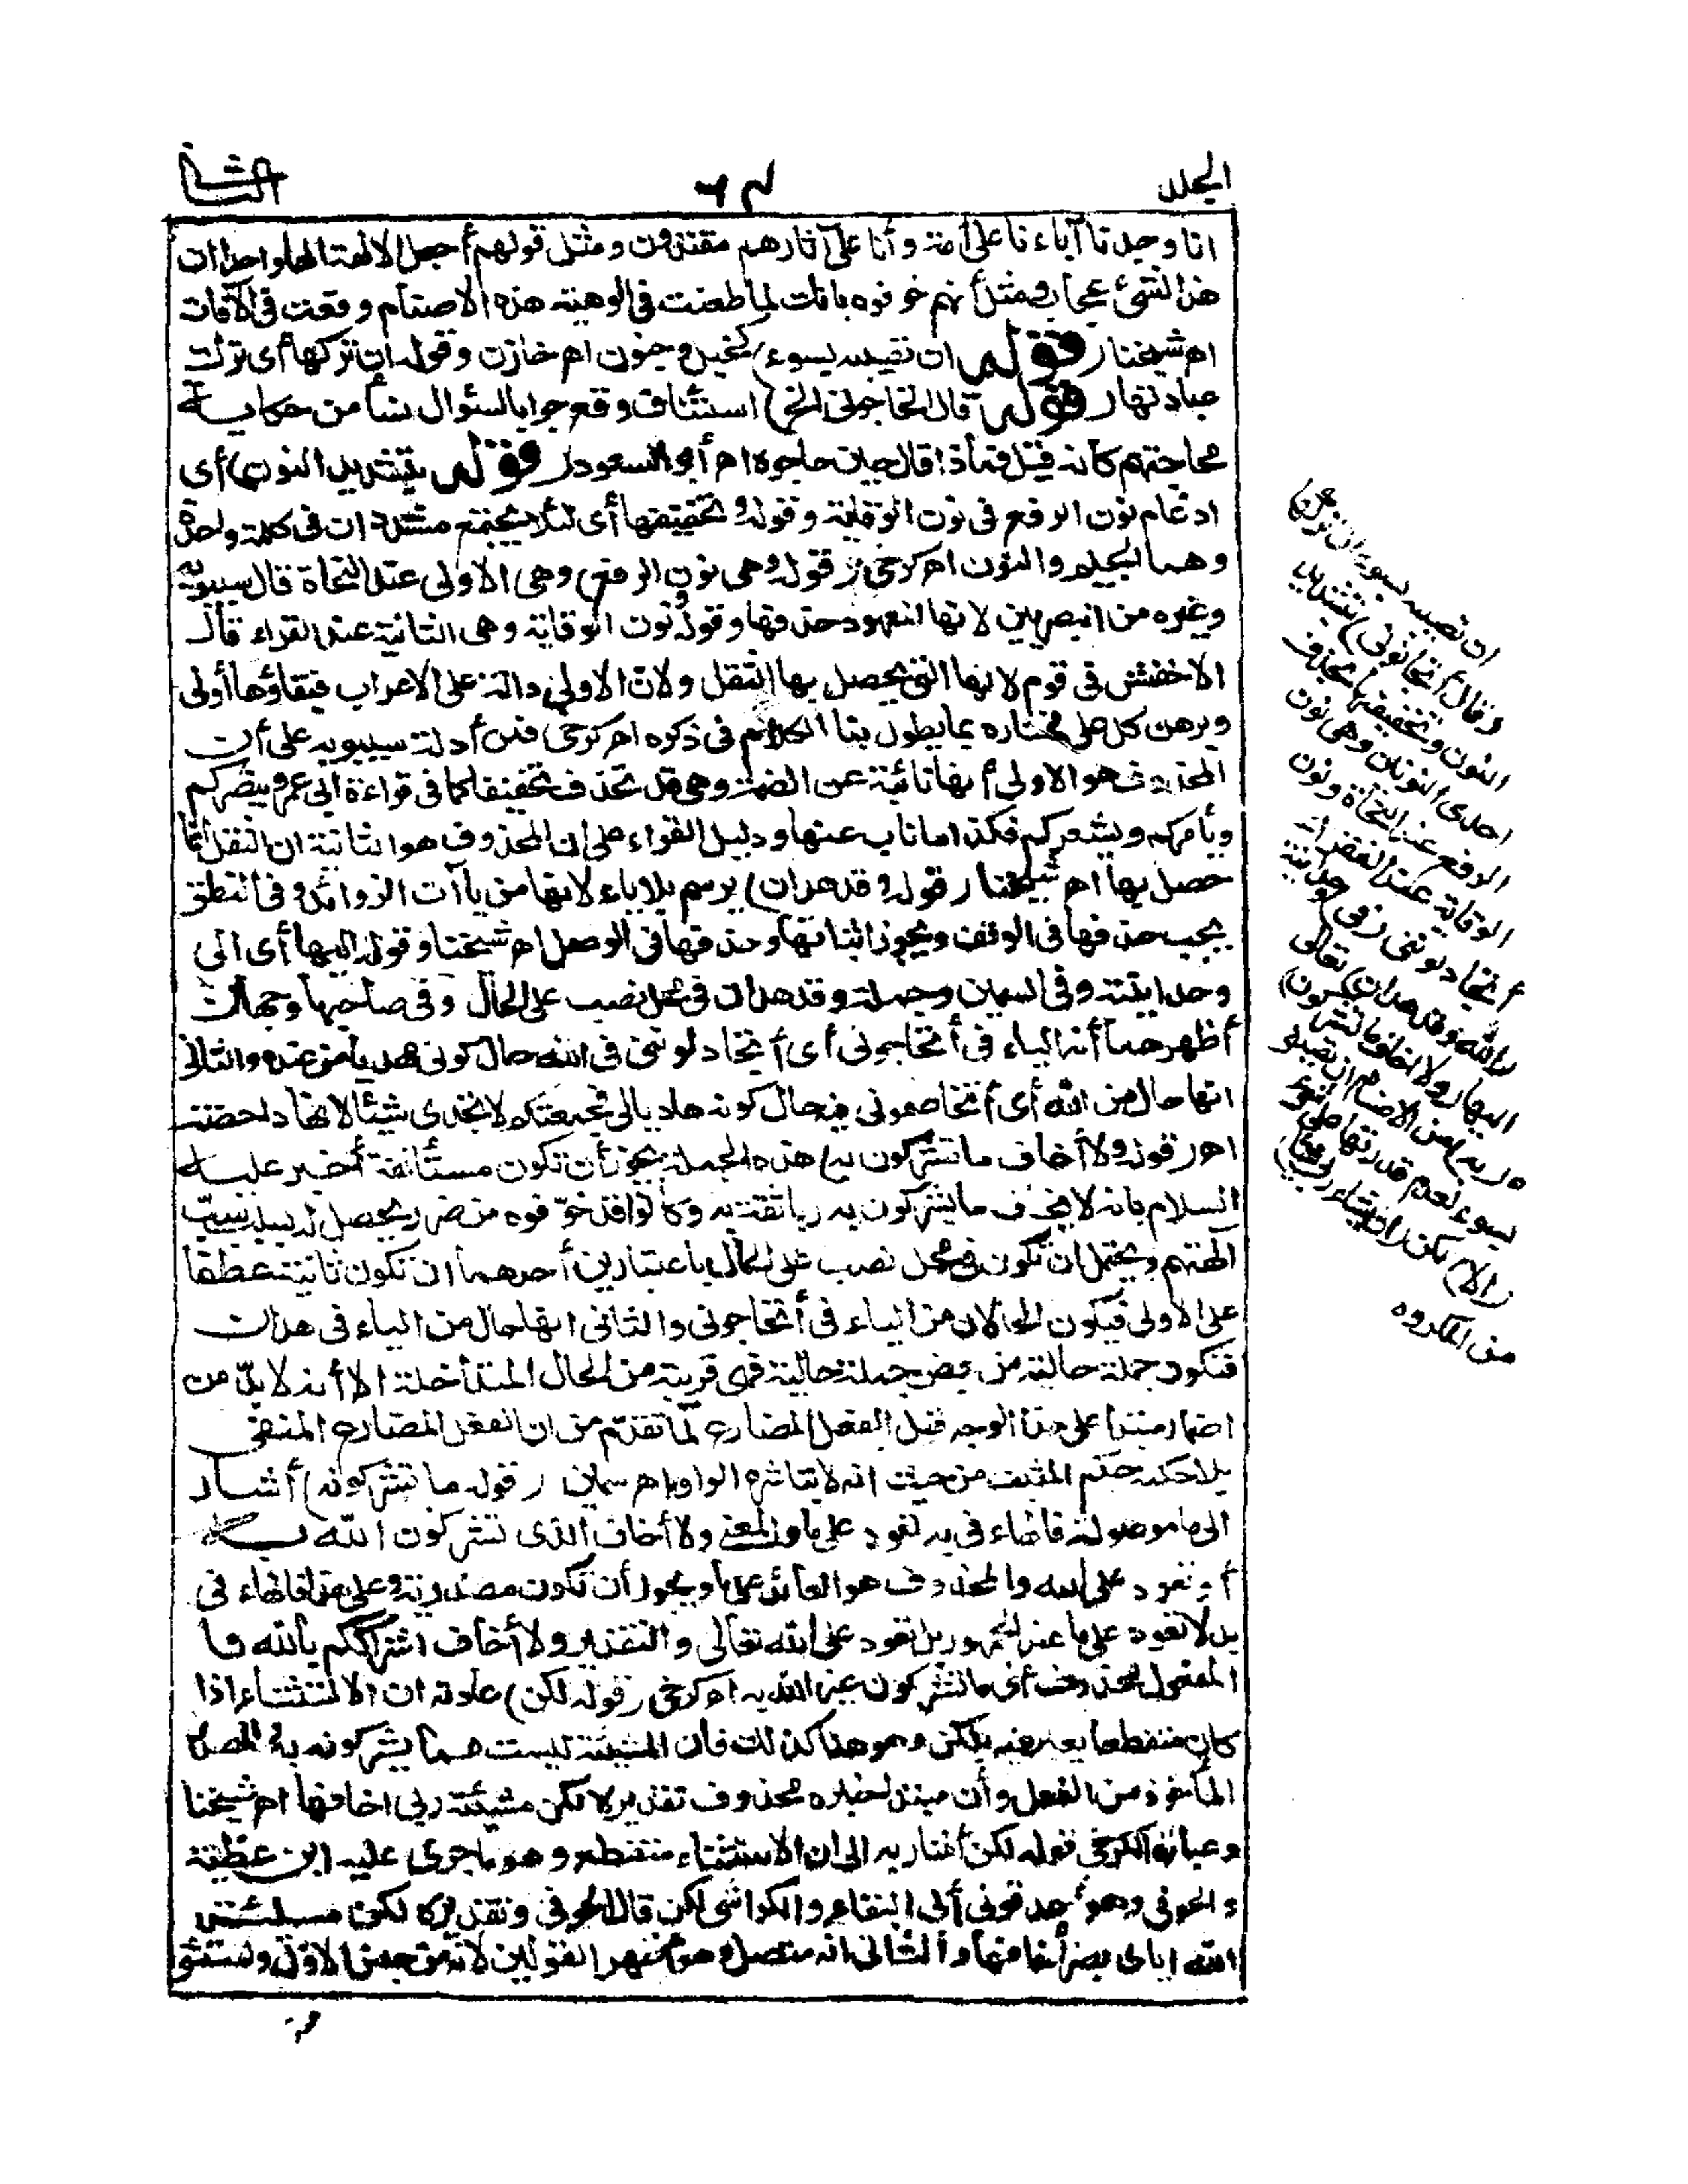 المجلد
٦٤
الثانى
انا وجدنا آباءنا على أمة وأنا على آثارهم مقتدون ومثل قولهم أجعل الآلهة الها واحدا ان
هذا لشئ عجاب ومثل أنهم خوفوه بانك لما طعنت فى الوهية هذه الاصنام وقعت فى الآفات
اه شيخنا (قوله ان تصيبه بسوء) كتخبيل وجنون اه خازن وقوله ان تركها أى ترك
عبادتها (قوله قال أتحاجونى الخ) استئناف وقع جوابا لسئوال نشأ من حكاية
محاجتهم كانه قيل فماذا قال حين حاجوه اه أبو السعود (قوله بتشديد النون) أى
ادغام نون الرفع فى نون الوقاية وقوله وتخفيفها أى لئلا يجتمع مشددان فى كلمة واحدة
وهما الجيم والنون اه كرخى (قوله وهى نون الرفع) وهى الاولى عند النحاة قال سيبويه
وغيره من البصريين لانها المعهود حذفها وقوله ونون الوقاية وهى الثانية عند القراء قال
الاخفش فى قوم لانها التى يحصل بها الثقل ولان الاولى دالة على الاعراب فبقاؤها أولى
وبرهن كل على مختاره بما يطول بنا الكلام فى ذكره اه كرخى فمن أدلة سيبويه على أن
المحذوف هو الاولى أنها نائبة عن الضمة وهى قد تحذف تخفيفا كما فى قراءة ابى عمرو ينصركم
ويأمركم ويشعركم فكذا ما ناب عنها ودليل القراء على ان المحذوف هو الثانية ان الثقل انما
حصل بها اه شيخنا (قوله وقد هدان) يرسم بلا ياء لانها من ياآت الزوائد وفى النطق
يجب حذفها فى الوقف ويجوز اثباتها وحذفها فى الوصل اه شيخنا وقوله اليها أى الى
وحدانيته وفى السمين وجملة وقد هدان فى محل نصب على الحال وفى صاحبها وجهان
أظهرهما أنه الياء فى أتحاجونى أى أتجادلوننى فى الله حال كونى مهديا من عنده والثانى
انها حال من الله أى أتخاصمونى فيه حال كونه هاديا لى فحجتكم لا تجدى شيئا لانها داحضة
اه (قوله ولا أخاف ما تشركون به) هذه الجملة يجوز أن تكون مستأنفة أخبر عليه
السلام بانه لا يخاف ما يشركون به ربا ثقة به وكانوا قد خوفوه من ضرر يحصل له بسبب سب
آلهتهم ويحتمل ان تكون فى محل نصب على الحال باعتبارين أحدهما ان تكون ثانية عطفا
على الاولى فيكون الحالان من الياء فى أتحاجونى والثانى انها حال من الياء فى هدان
فتكون جملة حالية من بعض جملة حالية فهى قريبة من الحال المتداخلة الا أنه لا بد من
اضمار مبتدا على هذا الوجه قبل الفعل المضارع لما تقدم من ان الفعل المضارع المنفى
بلا حكمه حكم المثبت من حيث انه لا تباشره الواو اه سمين (قوله ما تشركونه) أشار
الى ما موصولة فالهاء فى به تعود على ما والمعنى ولا أخاف الذى تشركون الله به
أو تعود على الله والمحذوف هو العائد على ما ويجوز أن تكون مصدرية وعلى هذا فالهاء فى
به لا تعود على ما عند الجمهور بل تعود على الله تعالى والتقدير ولا أخاف اشراككم بالله فا
المفعول محذوف أى ما تشركون غير الله به اه كرخى (قوله لكن) عادته ان الاستثناء اذا
كان منقطعا يعبر فيه بلكن وهو هنا كذلك فان المشيئة ليست مما يشركونه به والمصدر
المأخوذ من الفعل وأن مبتدا خبره محذوف تقديره لكن مشيئة ربى اخافها اه شيخنا
وعبارة الكرخى قوله لكن أشار به الى ان الاستثناء منقطع وهو ما جرى عليه ابن عطية
والحوفى وهو أحد قولى أبى البقاء والكواشى لكن قال الحوفى وتقديره لكن مشيئة
الله اياى بضر أخافها والثانى انه متصل وهو أظهر القولين لانه من جنس الاول والمستثنى
ان تصيبه بسوء ان تركها
(وقال أتحاجونى) بتشديد
النون وتخفيفها بحذف
احدى النونين وهى نون
الرفع عند النحاة ونون
الوقاية عند القراء
أتجادلوننى (فى) وحدانية
(الله وقد هدان) تعالى
اليها (ولا أخاف ما تشركون)
ه (به) من الاصنام ان تصيبنى
بسوء لعدم قدرتها على شئ
(الا) لكن (ان يشاء ربى شيئا)
من المكروه